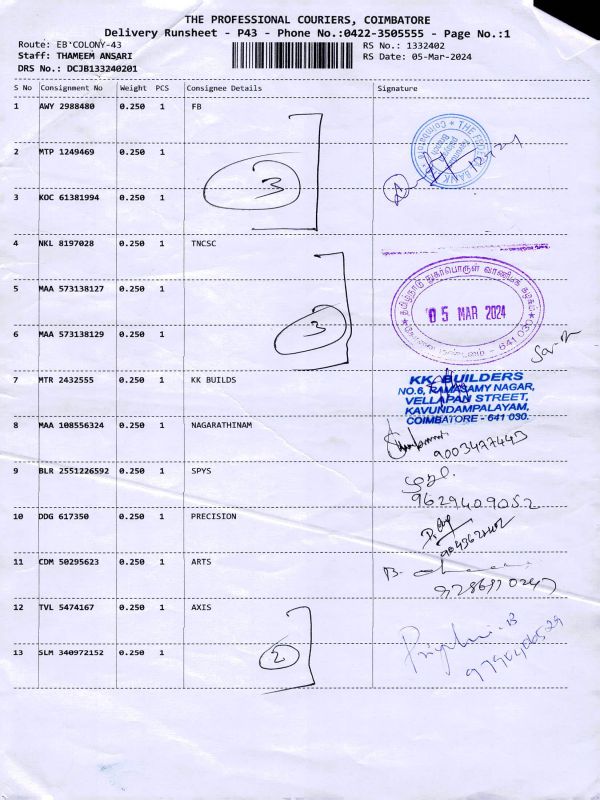 THE PROFESSIONAL COURIERS, COIMBATORE
Delivery Runsheet - P43 - Phone No.:0422-3505555 - Page No.:1
Route: EB'COLONY-43 RS No.: 1332402
Staff: THAMEEM ANSARI RS Date: 05-Mar-2024
DRS No.: DCJB133240201
S No Consignment No Weight PCS Consignee Details Signature
1 AWY 2988480 0.250 1 FB
2 MTP 1249469 0.250 1
3
3 KOC 61381994 0.250 1
4 NKL 8197028 0.250 1 TNCSC
5 MAA 573138127 0.250 1
05 MAR 2024
3
6 MAA 573138129 0.250 1
641 030
7 MTR 2432555 0.250 1 KK BUILDS
KK BUILDERS
NO.6, RAMASAMY NAGAR,
VELLAPAN STREET,
KAVUNDAMPALAYAM,
COIMBATORE - 641 030.
8 MAA 108556324 0.250 1 NAGARATHINAM
9003477443
9 BLR 2551226592 0.250 1 SPYS
9629409052
10 DDG 617350 0.250 1 PRECISION
11 CDM 50295623 0.250 1 ARTS
12 TVL 5474167 0.250 1 AXIS
2
13 SLM 340972152 0.250 1